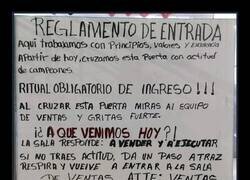 REGLAMENTO DE ENTRADA
Aquí trabajamos con Principios, valores y Excelencia
Apartir de hoy, cruzamos esta Puerta con actitud
de campeones.
RITUAL OBLIGATORIO DE INGRESO!!!
AL CRUZAR ESTA PUERTA MIRAS AL EQUIPO
DE VENTAS Y GRITAS FUERTE.
¡¿A QUE VENIMOS HOY?!
LA SALA RESPONDE: A VENDER Y A EJECUTAR
SI NO TRAES ACTITUD, DA UN PASO ATRAZ
RESPIRA Y VUELVE A ENTRAR A LA SALA
DE VENTAS ATTE: VENTAS